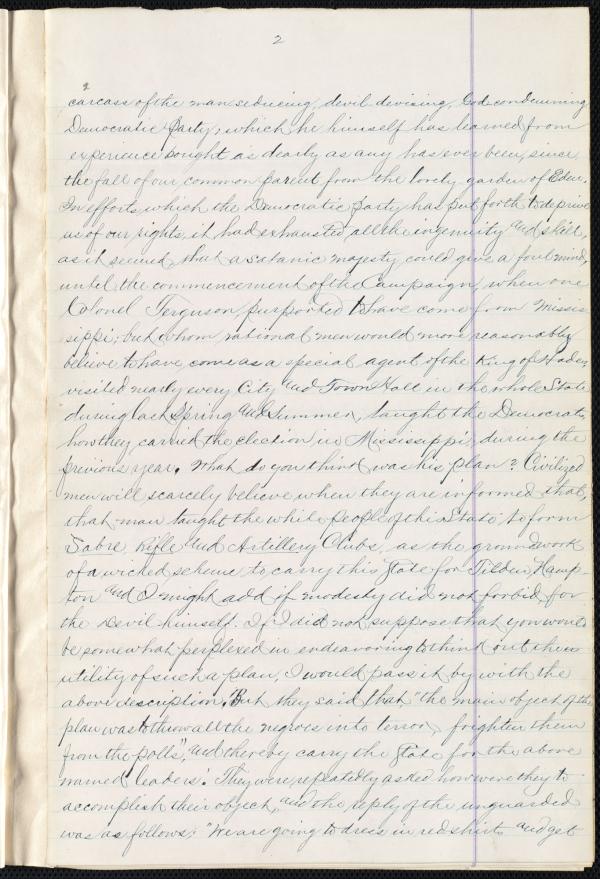 2
2
carcass of the man seducing, devil devising, God-condemning
Democratic Party, which he himself has learned from
experience bought as dearly as any has ever been, since
the fall of our common parent from the lovely garden of Eden.
In efforts, which the Democratic Party has put forth to deprive
us of our rights, it had exhausted all the ingenuity and skill,
as it seemed, that a satanic majesty could give a foul mind,
until the commencement of the Campaign, when one
Colonel Ferguson, purported to have come from Missis
sippi; but whom, rational men would more reasonably
believe to have come as a special agent of the King of Hades,
visited nearly every City and Town Hall in the whole State
during last Spring and Summer, taught the Democrats
how they carried the election in Mississippi, during the
previous year. What do you think was his plan? Civilized
men will scarcely believe when they are informed that,
that man taught the white people of this State to form
Sabre, Rifle and Artillery Clubs, as the groundwork
of a wicked scheme to carry this State for Tilden, Hamp-
ton and I might add if modesty did not forbid, for
the Devil himself. If I did not suppose that you would
be somewhat perplexed in endeavoring to think out the
utility of such a plan, I would pass it by with the
above description. But they said that "the main object of the
plan was to throw all the negroes into terror, frighten them
from the polls", and thereby carry the State for the above
named 'leaders'. They were repeatedly asked how were they to
accomplish their object, and the reply of the unguarded
was as follows: "We are going to dress in red shirts and get